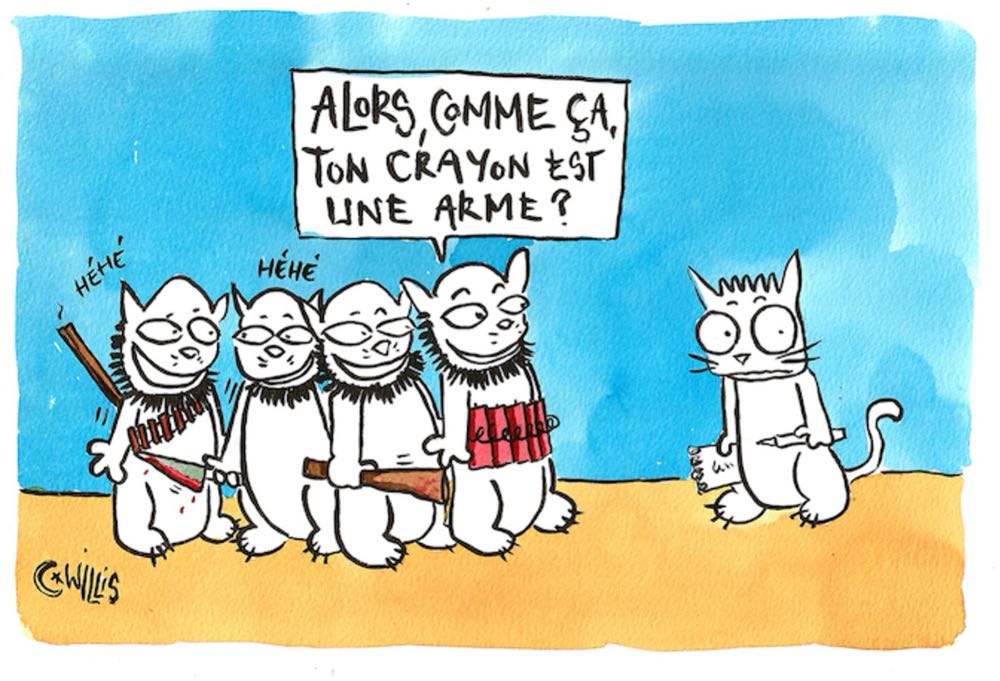 ALORS, COMME ÇA,
TON CRAYON EST
UNE ARME ?
HÉHÉ
HÉHÉ
WILLIS